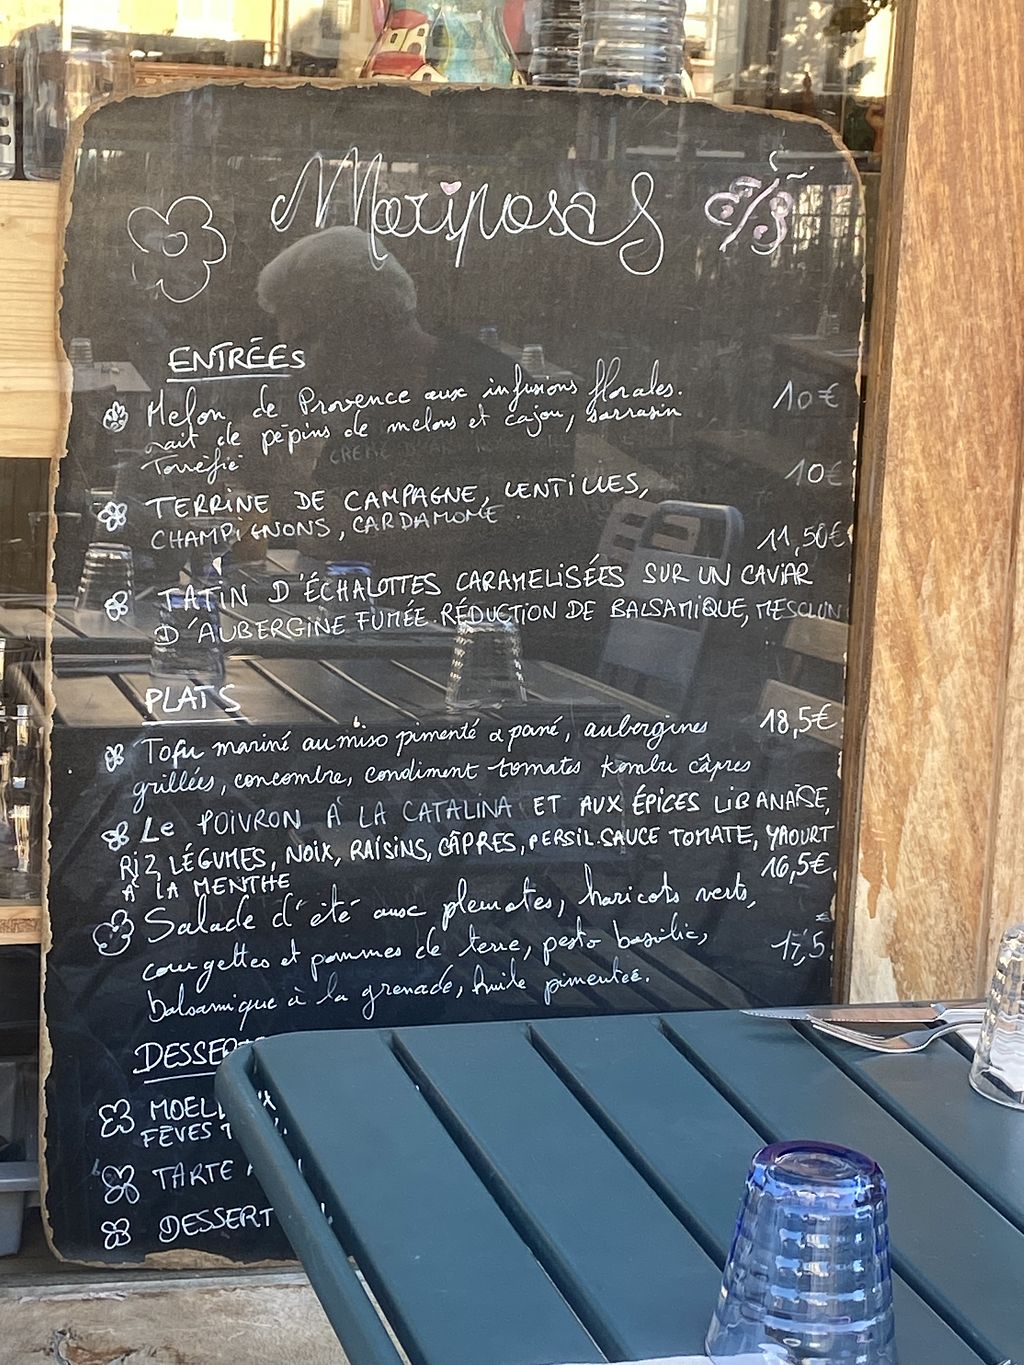 Mariposas
ENTRÉES
Melon de Provence aux infusions florales. 10€
lait de pépins de melons et cajou, sarrasin
Torréfié
10€
TERRINE DE CAMPAGNE, LENTILLES,
CHAMPIGNONS, CARDAMOME
11,50€
TATIN D'ÉCHALOTTES CARAMELISÉES SUR UN CAVIAR
D'AUBERGINE FUMÉE. RÉDUCTION DE BALSAMIQUE, MESCLUN
PLATS
Tofu mariné au miso pimenté & pané, aubergines 18,5€
grillées, concombre, condiment tomates kombu câpres
Le POIVRON À LA CATALINA ET AUX ÉPICES LIBANAISE,
RIZ, LÉGUMES, NOIX, RAISINS, CÂPRES, PERSIL. SAUCE TOMATE, YAOURT
À LA MENTHE 16,5€
Salade d'été aux pleurotes, haricots verts,
courgettes et pommes de terre, pesto basilic, 17,5
balsamique à la grenade, huile pimentée.
DESSERT
MOEL
FÈVES T
TARTE
DESSERT